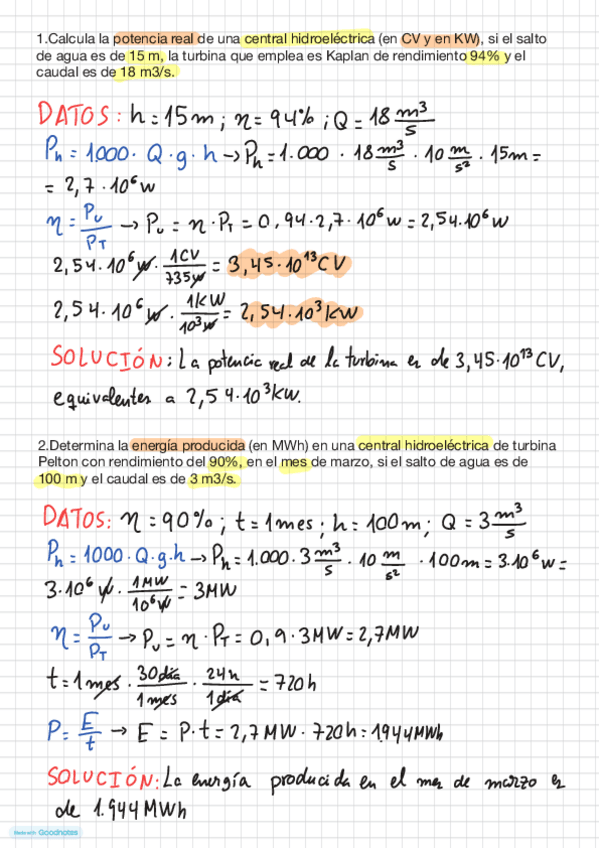 1.Calcula la potencia real de una central hidroeléctrica (en CV y en KW), si el salto
de agua es de 15 m, la turbina que emplea es Kaplan de rendimiento 94% y el
caudal es de 18 m3/s.
DATOS: h=15m; η=94%; Q=18 m³/s
Ph=1000·Q·g·h→Ph=1.000·18 m³/s·10 m/s²·15m=
=2,7·10⁶w
η=Pu/PT→Pu=η·PT=0,94·2,7·10⁶w=2,54·10⁶w
2,54·10⁶w·1CV/735w=3,45·10¹³CV
2,54·10⁶w·1KW/10³w=2,54·10³KW
SOLUCIÓN: La potencia real de la turbina es de 3,45·10¹³CV,
equivalentes a 2,54·10³KW.
2.Determina la energía producida (en MWh) en una central hidroeléctrica de turbina
Pelton con rendimiento del 90%, en el mes de marzo, si el salto de agua es de
100 m y el caudal es de 3 m3/s.
DATOS: η=90%; t=1mes; h=100m; Q=3 m³/s
Ph=1000·Q·g.h→Ph=1.000·3 m³/s·10 m/s²·100m=3·10⁶w=
3·10⁶w·1MW/10⁶w=3MW
η=Pu/PT→Pu=η·PT=0,9·3MW=2,7MW
t=1mes·30día/1mes·24h/1día=720h
P=E/t→E=P·t=2,7MW·720h=1944MWh
SOLUCIÓN: La energía producida en el mes de marzo es
de 1.944MWh
Made with Goodnotes